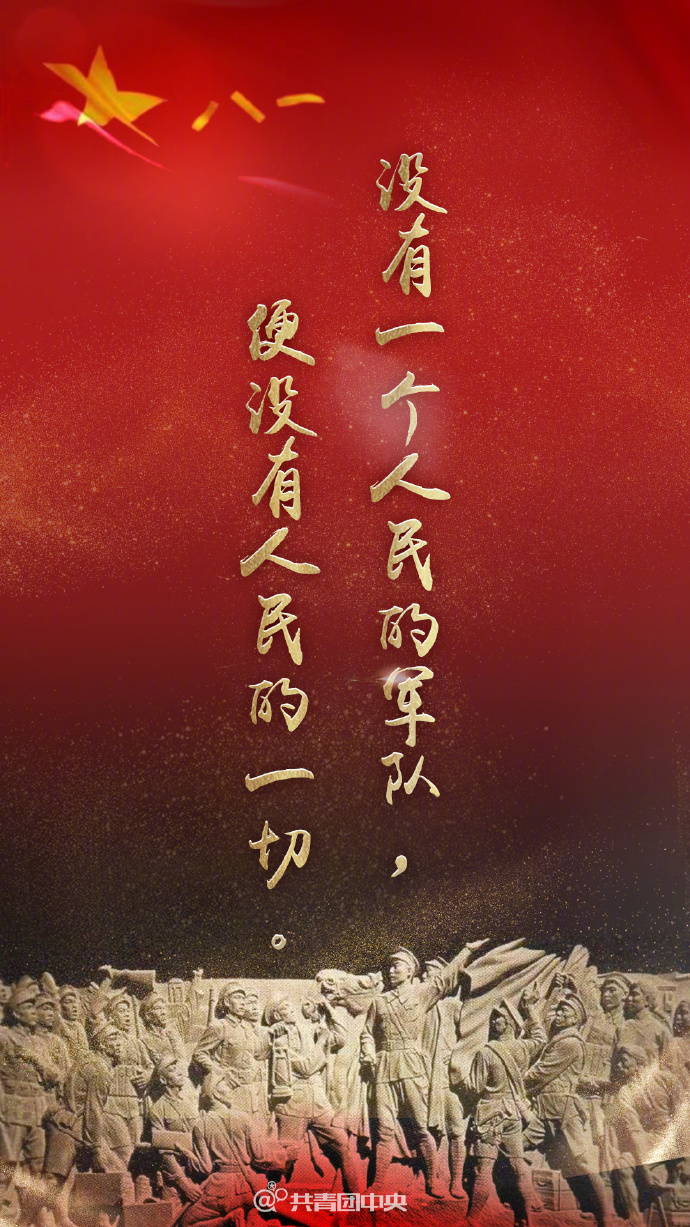 八一
没有一个人民的军队，
便没有人民的一切。
@共青团中央